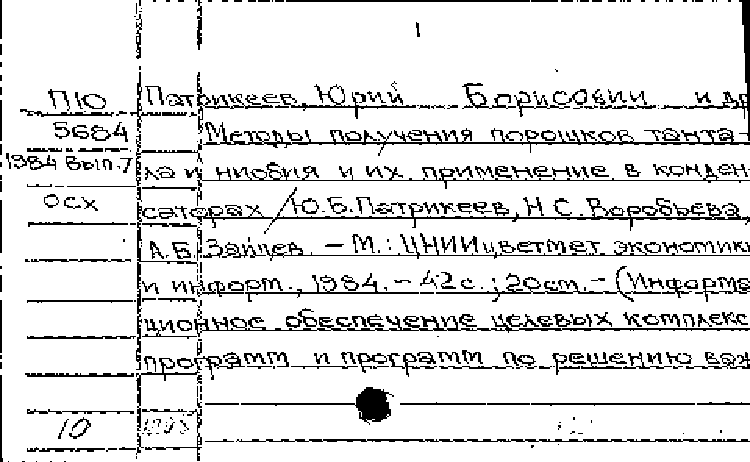 1
ПЮ Патрикеев, Юрий Борисович и др
5684 Методы получения порошков танта-
1984 Вып. 7 ла и ниобия и их применение в конден-
ОСХ саторах / Ю.Б. Патрикеев, Н.С. Воробьева,
А.Б. Зайцев. – М.: ЦНИИцветмет экономики
и информ., 1984. – 42 с.; 20 см. – (Информа
ционное обеспечение целевых комплекс
программ и программ по решению важ
10